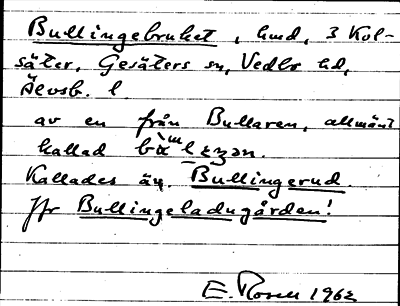 Bullingebruket, hmd, 3 Kol-
säter, Gesäters sn, Vedbo hd,
Älvsb. l.
av en från Bullaren, allmänt
kallad
Kallades äv. Bullingerud.
Jfr Bullingeladugården!
E. Rosell 1962